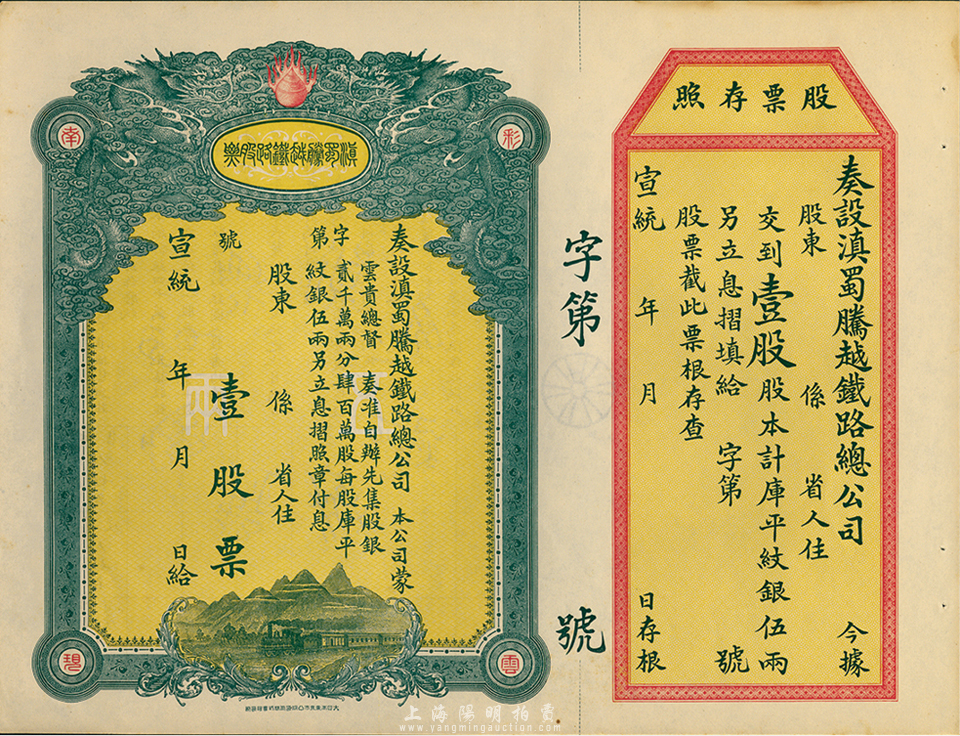 股票存照
奏設滇蜀騰越鐵路總公司 今據
股東 係 省人住
交到壹股股本計庫平紋銀伍兩
另立息摺填給 字第 號
股票截此票根存查
宣統 年 月 日存根
字第 號
滇蜀騰越鐵路股票
彩
雲
南
現
奏設滇蜀騰越鐵路總公司 本公司蒙
雲貴總督 奏准自辦先集股銀
貳千萬兩分肆百萬股每股庫平
紋銀伍兩另立息摺照章付息
字第
股東 係 省人住
號
壹股票
宣統 年 月 日給
伍兩
上海陽明拍賣
www.yangmingauction.com